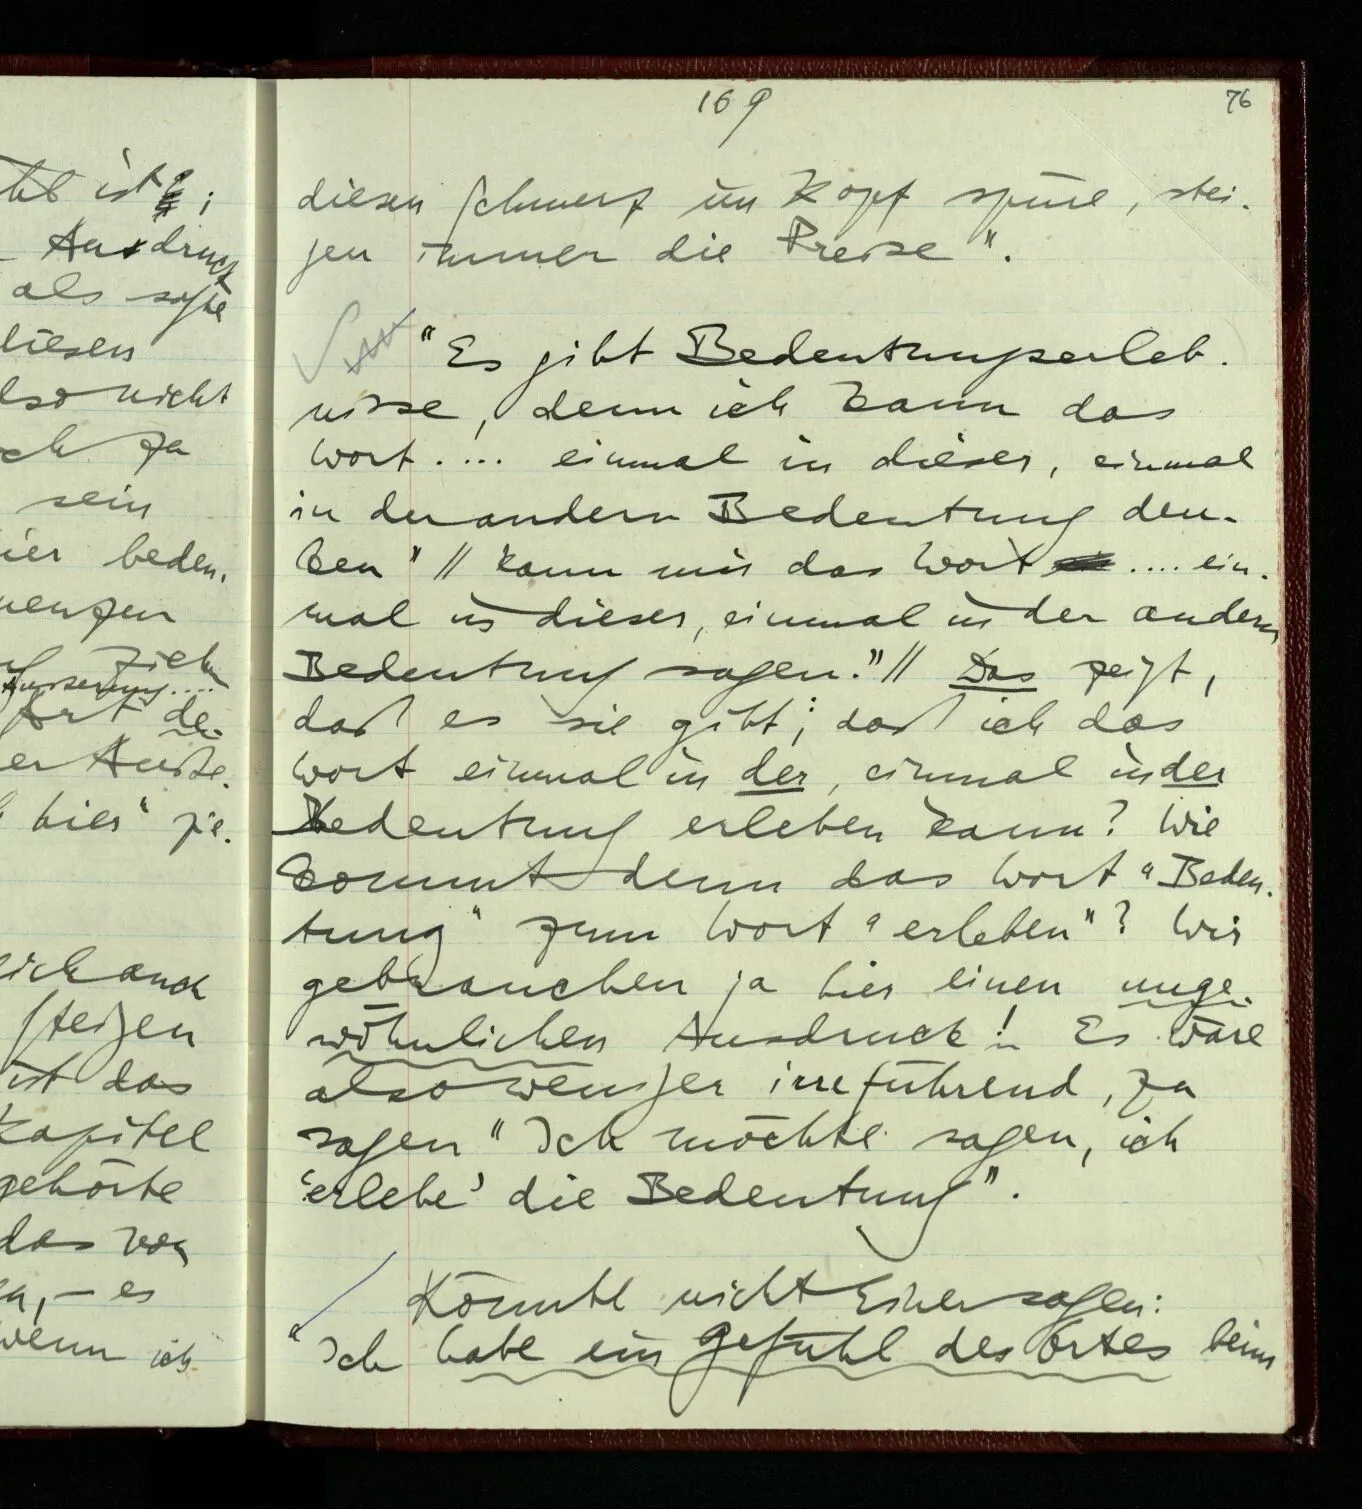 tet ist;
Ausdruck
als sagte
diesen
also nicht
och zu
sein
hier beden-
zieh
Äusserung....
Ort de-
er Äuße-
hier" zie-
sich auch
steigen
ist das
Kapitel
gehörte
das von
, – es
wenn ich
169
76
diesen Schmerz im Kopf spüre, stei-
gen immer die Preise".
"Es gibt Bedeutungserleb-
nisse, denn ich kann das
Wort .... einmal in dieser, einmal
in der andern Bedeutung den-
ken" // kann mir das Wort .... ein-
mal in dieser, einmal in der andern
Bedeutung sagen." // Das zeigt,
daß es sie gibt; daß ich das
Wort einmal in der, einmal in der
Bedeutung erleben kann? Wie
kommt denn das Wort "Bedeu-
tung" zum Wort "erleben"? Wir
gebrauchen ja hier einen unge-
wöhnlichen Ausdruck! Es wäre
also weniger irreführend, zu
sagen "Ich möchte sagen, ich
'erlebe' die Bedeutung".
Könnte nicht Einer sagen:
"Ich habe ein Gefühl des Ortes beim